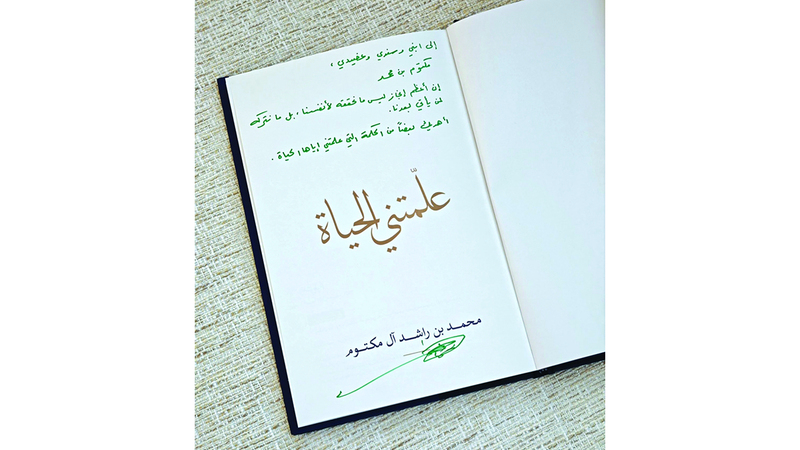 إلى ابني وسندي وعضيدي ،
مكتوم بن محمد
إن أعظم إنجاز ليس ما نحققه لأنفسنا، بل ما نتركه
لمن يأتي بعدنا.
أهديك بعضاً من الحكمة التي علمتني إياها الحياة .
علّمتني الحياة
محمد بن راشد آل مكتوم